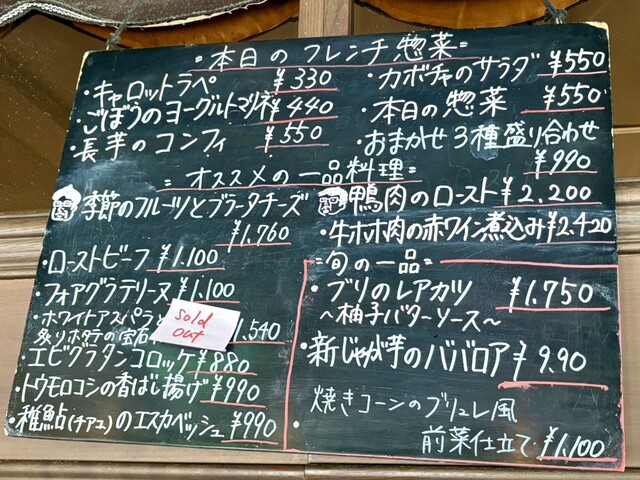 =本日のフレンチ惣菜=
・キャロットラペ ¥330
・ごぼうのヨーグルトマリネ ¥440
・長芋のコンフィ ¥550
・カボチャのサラダ ¥550
・本日の惣菜 ¥550
・おまかせ3種盛り合わせ
¥990
=オススメの一品料理=
季節のフルーツとブラータチーズ
¥1,760
・ローストビーフ ¥1,100
・フォアグラテリーヌ ¥1,100
・ホワイトアスパラと
炙りホタテの宝石 1,540
sold
out
・エビグラタンコロッケ ¥880
・トウモロコシの香ばし揚げ ¥990
・稚鮎(チアユ)のエスカベッシュ ¥990
鴨肉のロースト ¥2,200
・牛ホホ肉の赤ワイン煮込み ¥2,420
=旬の一品=
・ブリのレアカツ ¥1,750
〜柚子バターソース〜
・新じゃが芋のババロア ¥9.90
・焼きコーンのブリュレ風
前菜仕立て ¥1,100